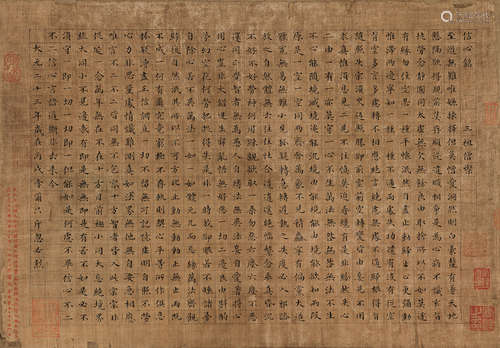 信心銘 三祖僧璨
至道無難唯嫌揀擇但莫憎愛洞然明白毫釐有差天地
懸隔欲得現前莫存順逆違順相爭是為心病不識玄旨
徒勞念靜圓同太虛無欠無餘良由取捨所以不如莫逐
有緣勿住空忍一種平懷泯然自盡止動歸止止更彌動
唯滯兩邊寧知一種一種不通兩處失功遣有沒有從空
背空多言多慮轉不相應絕言絕慮無處不通歸根得旨
隨照失宗須臾返照勝卻前空前空轉變皆由妄見不用
求真唯須息見二見不住慎莫追尋纔有是非紛然失心
二由一有一亦莫守一心不生萬法無咎無咎無法不生
不心能隨境滅境逐能沉境由能境能由境能欲知兩段
元是一空一空同兩齊含萬象不見精麤寧有偏黨大道
體寬無易無難小見狐疑轉急轉遲執之失度必入邪路
放之自然體無去住任性合道逍遙絕惱繫念乖真昏沉
不好不好勞神何用疏親欲取一乘勿惡六塵六塵不惡
還同正覺智者無為愚人自縛法無異法妄自愛著將心
用心豈非大錯迷生寂亂悟無好惡一切二邊良由斟酌
夢幻空花何勞把捉得失是非一時放卻眼若不睡諸夢
自除心若不異萬法一如一如體玄兀爾忘緣萬法齊觀
歸復自然泯其所以不可方比止動無動動止無止兩既
不成一何有爾究竟窮極不存軌則契心平等所作俱息
狐疑淨盡正信調直一切不留無可記憶虛明自照不勞
心力非思量處識情難測真如法界無他無自要急相應
唯言不二不二皆同無不包容十方智者皆入此宗宗非
促延一念萬年無在不在十方目前極小同大忘絕境界
極大同小不見邊表有即是無無即是有若不如是必不
須守一即一切一切即一但能如是何慮不畢信心不二
不二信心言語道斷非去來今
大元二十三年歲在丙戌